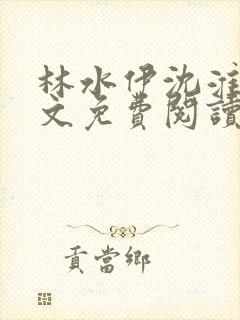 林水伊沈淮
文免費閱讀
貢當鄉